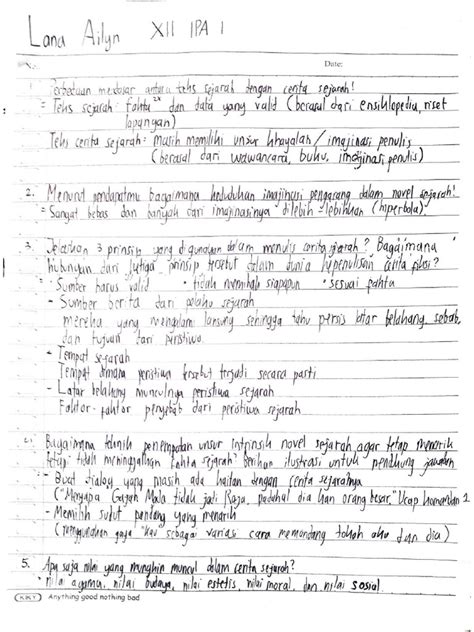 Lana Ailyn XII IPA 1
No.: Date:
1. Perbedaan mendasar antara teks sejarah dengan cerita sejarah!
= Teks sejarah : fakta2x dan data yang valid (berasal dari ensiklopedia, riset
lapangan)
Teks cerita sejarah = masih memiliki unsur khayalan / imajinasi penulis
(berasal dari wawancara, buku, imajinasi penulis)
2. Menurut pendapatmu bagaimana kedudukan imajinasi pengarang dalam novel sejarah!
= Sangat bebas dan banyak dari imajinasinya dilebih-lebihkan (hiperbola)
3. Jelaskan 3 prinsip yang digunakan dalam menulis cerita sejarah? Bagaimana
hubungan dari ketiga prinsip tersebut dalam dunia kepenulisan cerita fiksi?
- Sumber harus valid tidak memihak siapapun sesuai fakta
- Sumber berita dari pelaku sejarah
mereka yang mengalami lansung sehingga tahu persis latar belakang, sebab,
dan tujuan dari peristiwa.
- Tempat sejarah
Tempat dimana peristiwa tersebut terjadi secara pasti
- Latar belakang munculnya peristiwa sejarah
Faktor-faktor penyebab dari peristiwa sejarah
4. Bagaimana teknik penempatan unsur intrinsik novel sejarah agar tetap menarik
tetapi tidak meninggalkan fakta sejarah? Berikan ilustrasi untuk pendukung jawaban
- Buat dialog yang masih ada kaitan dengan cerita sejarahnya
("Mengapa Gajah Mada tidak jadi Raja, padahal dia kan orang besar," Ucap
- Memilih sudut pandang yang menarik
(menggunakan gaya "kau sebagai variasi cara memandang tokoh aku dan dia)
5. Apa saja nilai yang mungkin muncul dalam cerita sejarah?
= nilai agama, nilai budaya, nilai estetis, nilai moral, dan nilai sosial
KIKY Anything good nothing bad